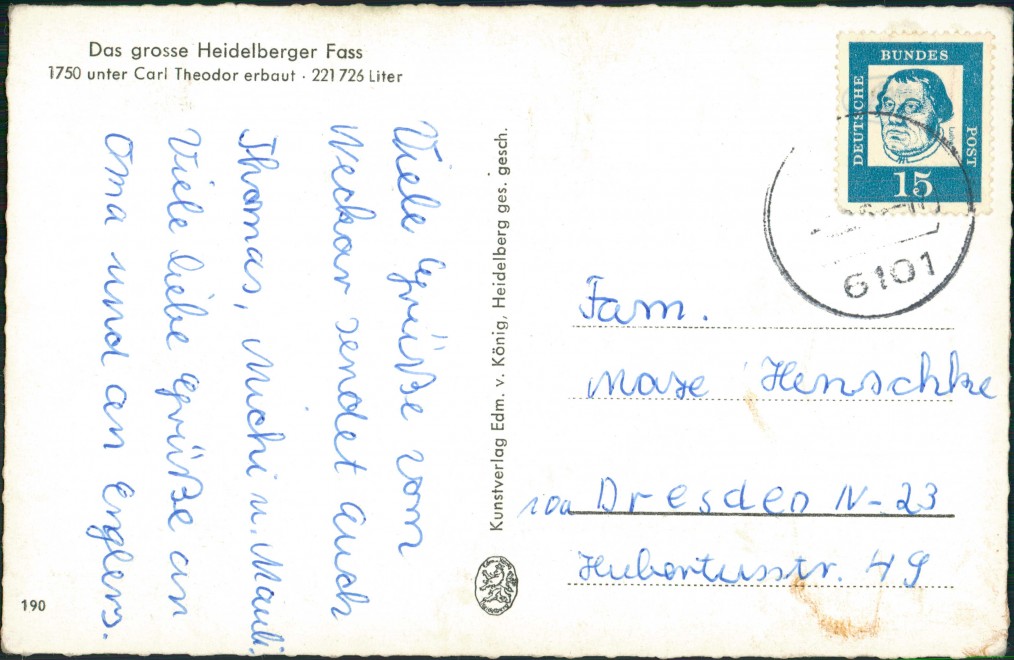 Das grosse Heidelberger Fass
1750 unter Carl Theodor erbaut · 221726 Liter
Viele Grüße vom
Neckar sendet auch
Thomas, Michi u. Mauli.
Viele liebe Grüße an
Oma und an Englers.
190
Kunstverlag Edm. v. König, Heidelberg ges. gesch.
DEUTSCHE
BUNDES
POST
15
6101
Fam.
Maxe Henschke
10a Dresden N-23
Hubertusstr. 49